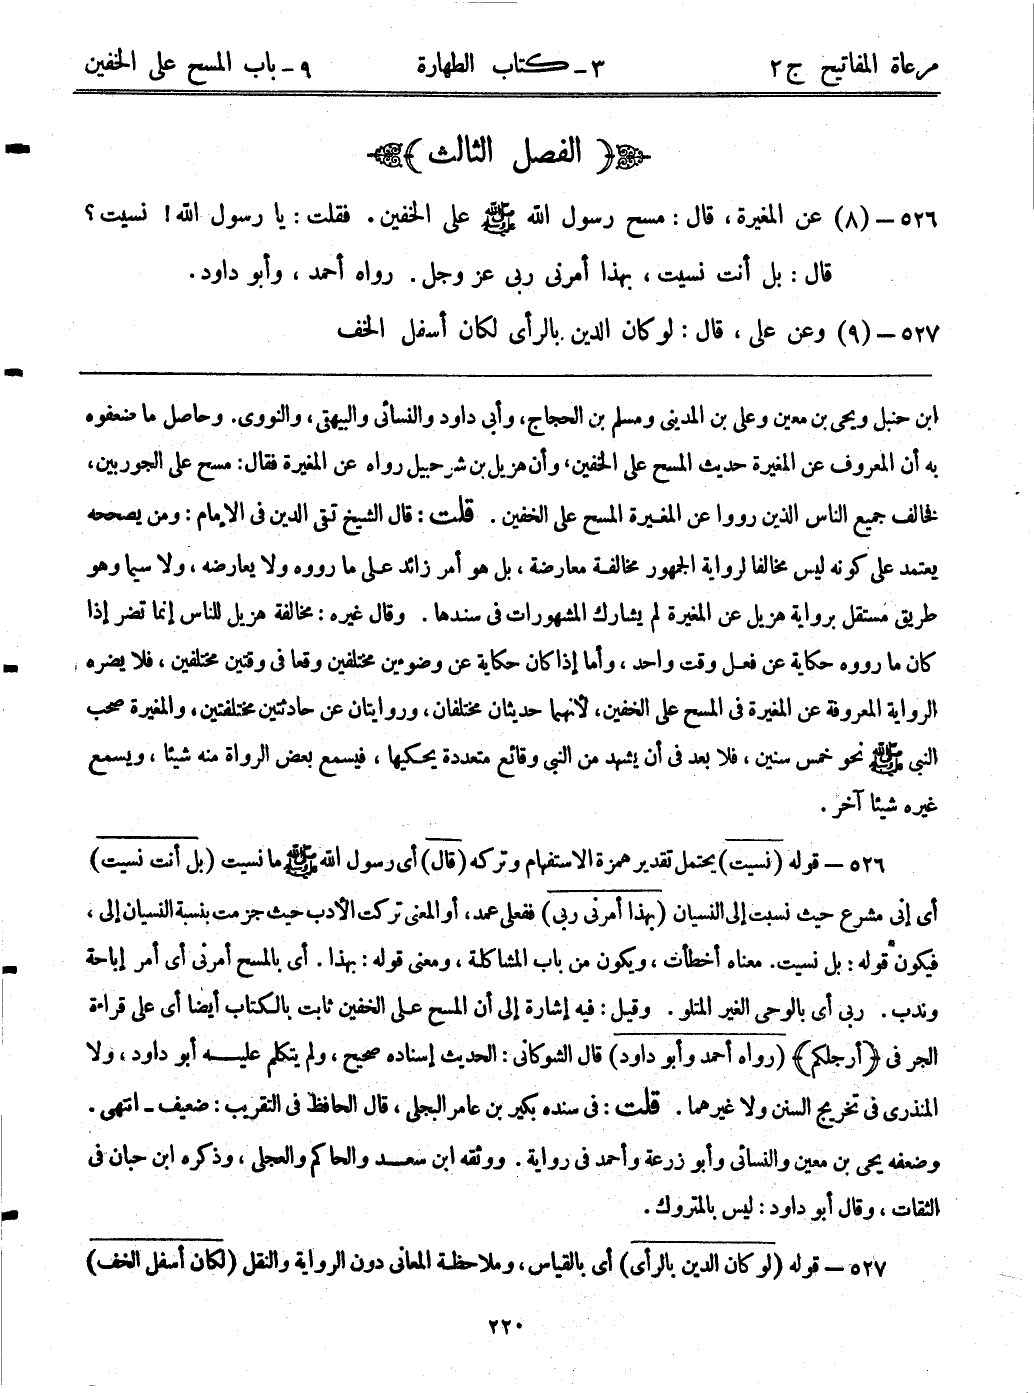 مرعاة المفاتيح ج ٢ ٣ - كتاب الطهارة ٩ - باب المسح على الخفين
﴿ الفصل الثالث ﴾
٥٢٦ - (٨) عن المغيرة ، قال : مسح رسول الله ﷺ على الخفين . فقلت : يا رسول الله ! نسيت ؟
قال : بل أنت نسيت ، بهذا أمرنى ربى عز وجل . رواه أحمد ، وأبو داود .
٥٢٧ - (٩) وعن على ، قال : لو كان الدين بالرأى لكان أسفل الخف
ابن حنبل ويحيى بن معين وعلى بن المدينى ومسلم بن الحجاج، وأبى داود والنسائى والبيهقى، والنووى. وحاصل ما ضعفوه
به أن المعروف عن المغيرة حديث المسح على الخفين، وأن هزيل بن شرحبيل رواه عن المغيرة فقال: مسح على الجوربين،
فخالف جميع الناس الذين رووا عن المغيرة المسح على الخفين . قلت : قال الشيخ تقى الدين فى الإمام : ومن يصححه
يعتمد على كونه ليس مخالفا لرواية الجمهور مخالفة معارضة ، بل هو أمر زائد على ما رووه ولا يعارضه ، ولا سيما وهو
طريق مستقل برواية هزيل عن المغيرة لم يشارك المشهورات فى سندها . وقال غيره : مخالفة هزيل للناس إنما تضر إذا
كان ما رووه حكاية عن فعل وقت واحد ، وأما إذا كان حكاية عن وضوءين مختلفين وقعا فى وقتين مختلفين ، فلا يضره
الرواية المعروفة عن المغيرة فى المسح على الخفين، لأنهما حديثان مختلفان، وروايتان عن حادثتين مختلفتين، والمغيرة صحب
النبى ﷺ نحو خمس سنين ، فلا بعد فى أن يشهد من النبى وقائع متعددة يحكيها ، فيسمع بعض الرواة منه شيئا ، ويسمع
غيره شيئا آخر .
٥٢٦ - قوله (نسيت) يحتمل تقدير همزة الاستفهام وتركه (قال) أى رسول الله ﷺ ما نسيت (بل أنت نسيت)
أى إنى مشرع حيث نسبت إلى النسيان (بهذا أمرنى ربى) ففعلى عمد، أو المعنى تركت الأدب حيث جزمت بنسبة النسيان إلى ،
فيكون قوله : بل نسيت. معناه أخطأت ، ويكون من باب المشاكلة ، ومعنى قوله : بهذا . أى بالمسح أمرنى أى أمر إباحة
وندب . ربى أى بالوحى الغير المتلو . وقيل : فيه إشارة إلى أن المسح على الخفين ثابت بالكتاب أيضا أى على قراءة
الجر فى ﴿أرجلكم﴾ (رواه أحمد وأبو داود) قال الشوكانى : الحديث إسناده صحيح ، ولم يتكلم عليه أبو داود ، ولا
المنذرى فى تخريج السنن ولا غيرهما . قلت : فى سنده بكير بن عامر البجلى ، قال الحافظ فى التقريب : ضعيف - انتهى .
وضعفه يحى بن معين والنسائى وأبو زرعة وأحمد فى رواية . ووثقه ابن سعد والحاكم والعجلى ، وذكره ابن حبان فى
الثقات ، وقال أبو داود : ليس بالمتروك .
٥٢٧ - قوله (لو كان الدين بالرأى) أى بالقياس، وملاحظة المعانى دون الرواية والنقل (لكان أسفل الخف)
٢٢٠